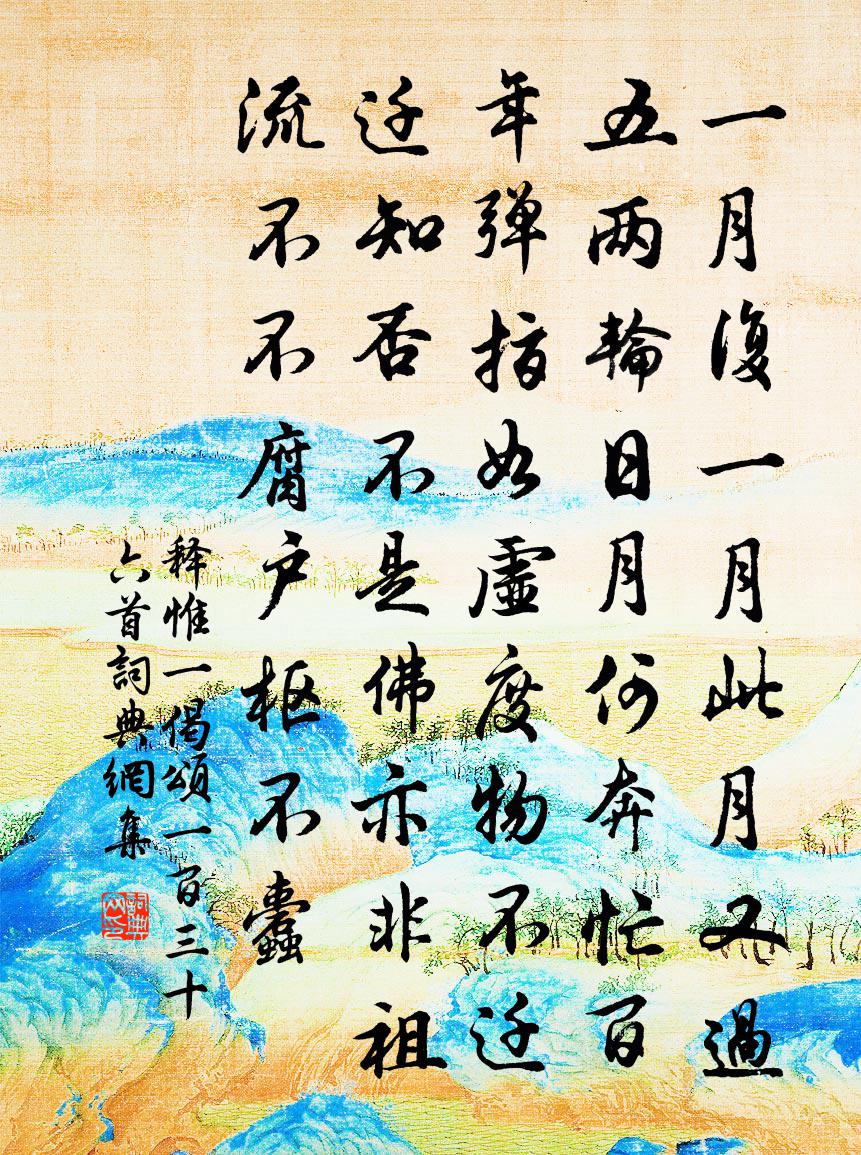 一月復一月此月又過
五两輪日月何奔忙百
年弹指如虚度物不迁
迁知否不是佛亦非祖
流不不腐户枢不蠹
释惟一偈頌一百三十
六首詞典網集